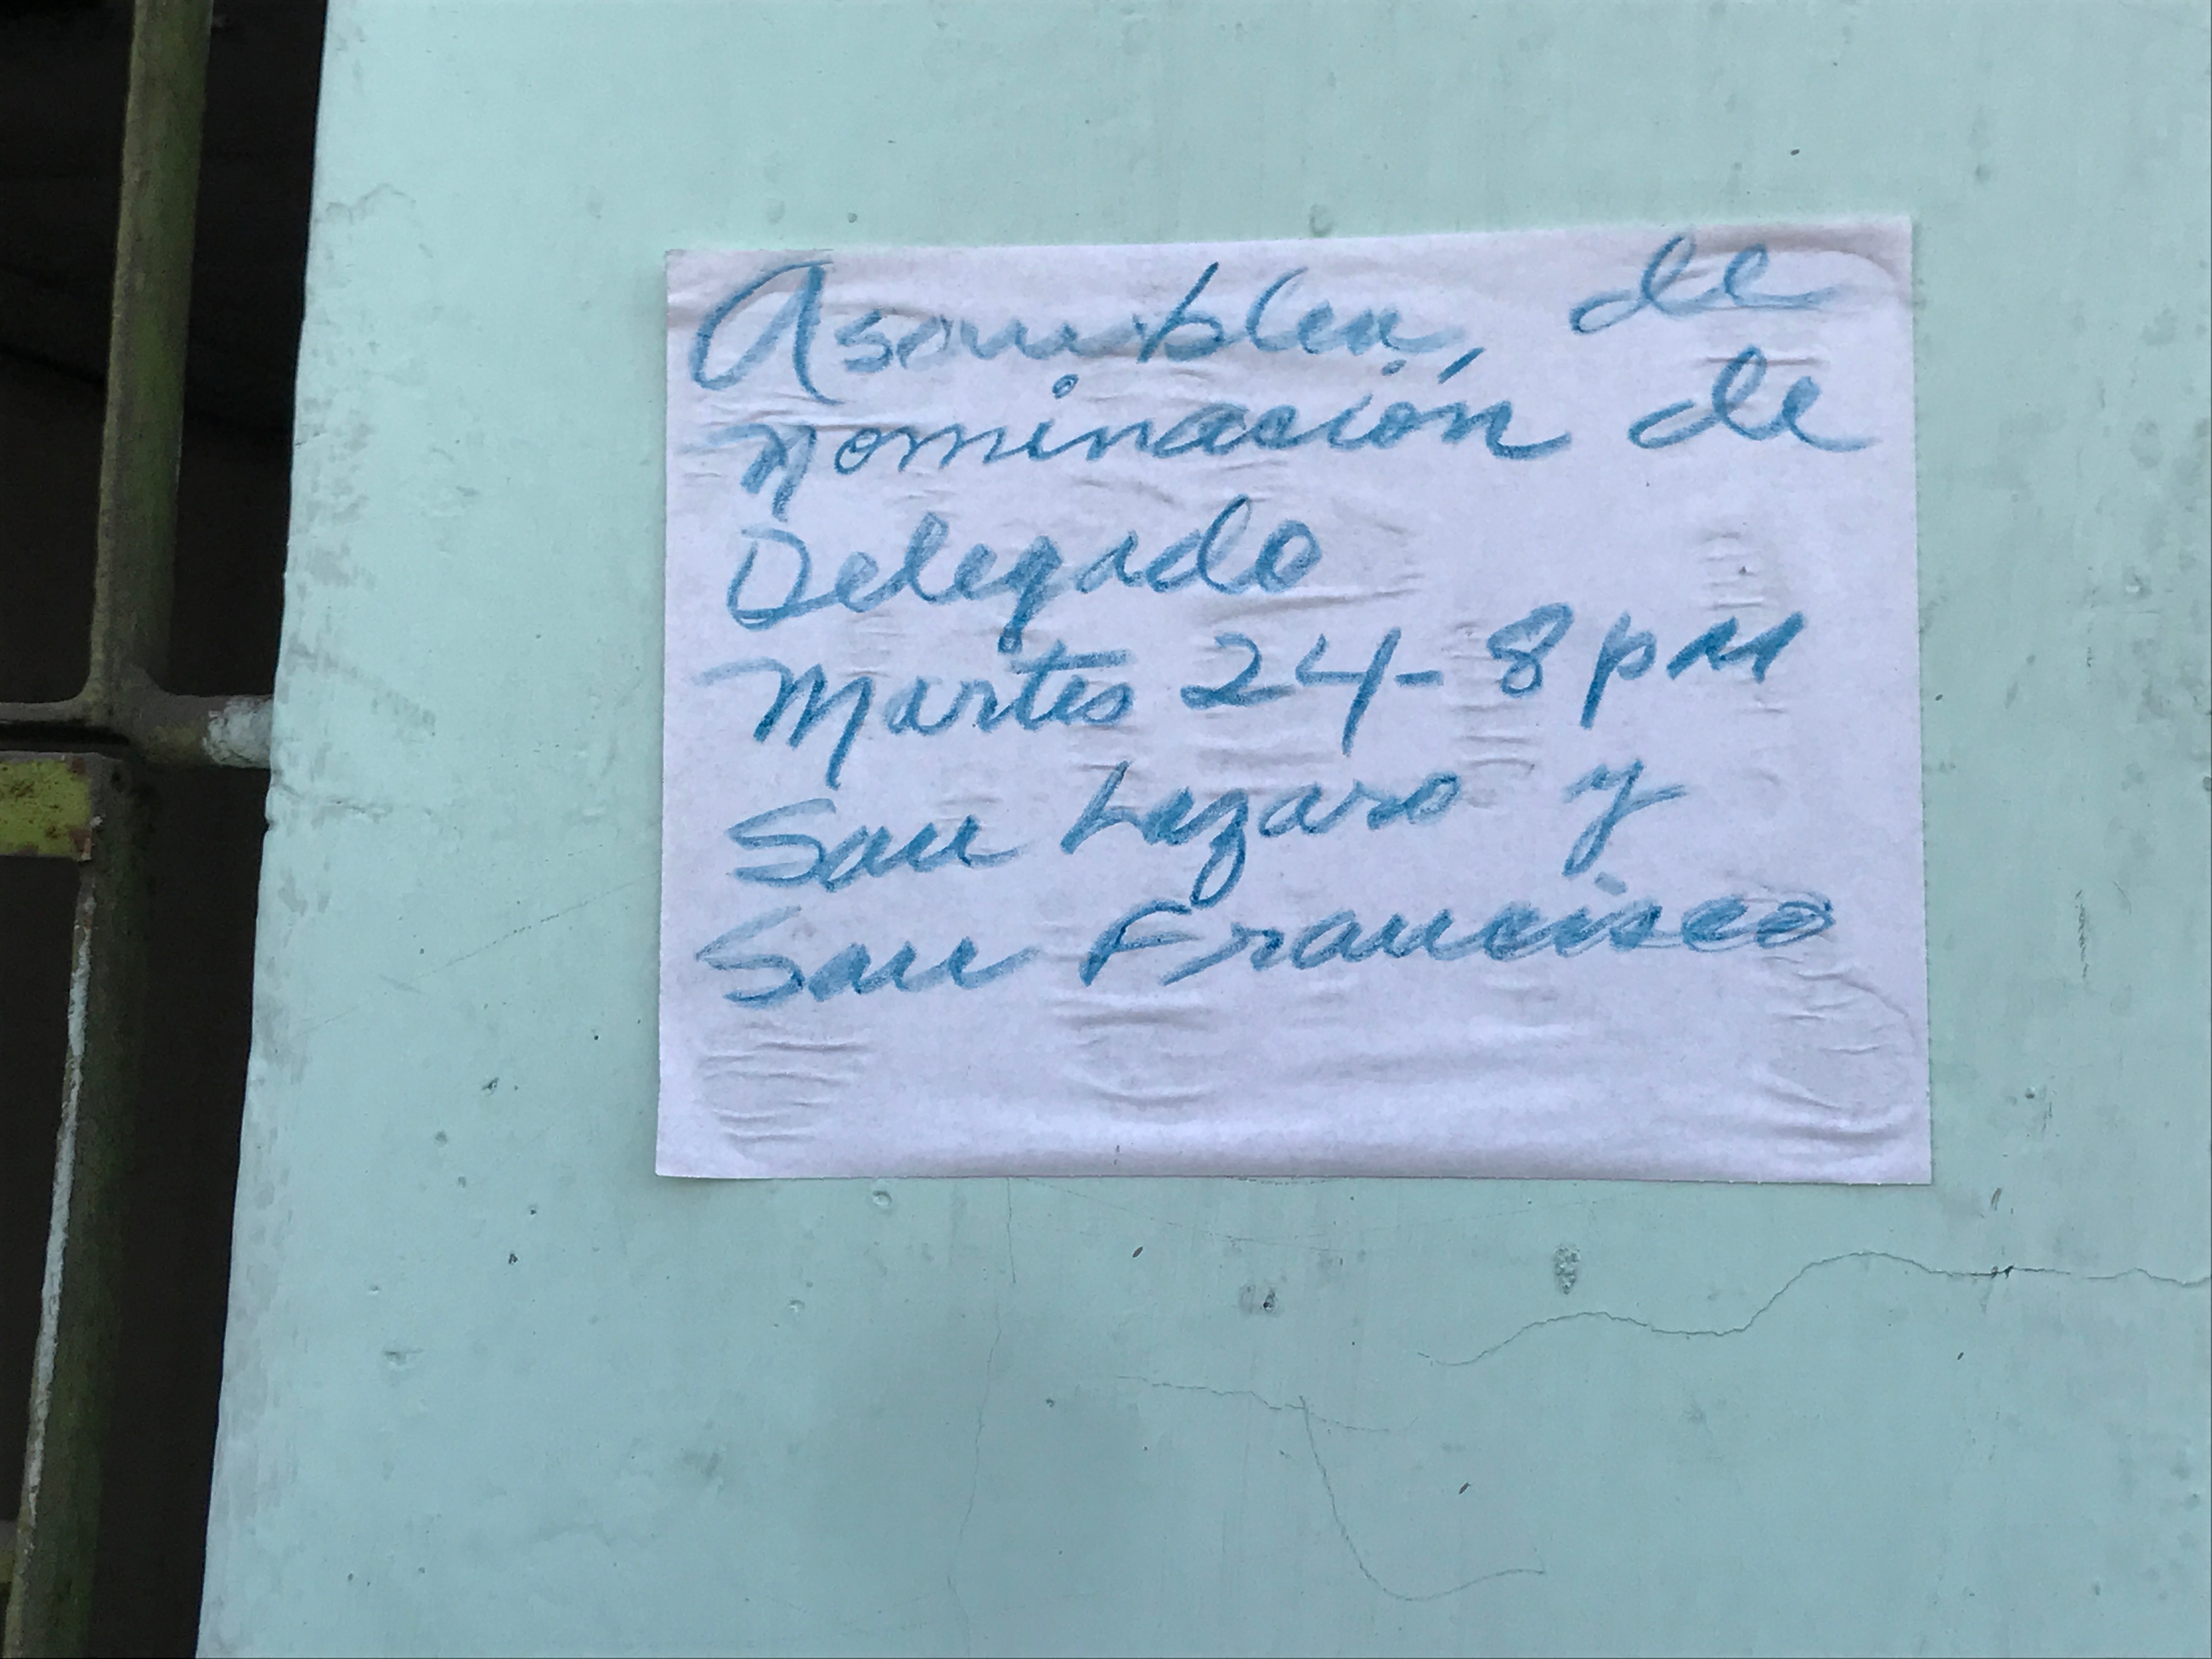 Asamblea de
nominación de
Delegado
Martes 24 - 8 pm
San Lazaro y
San Francisco